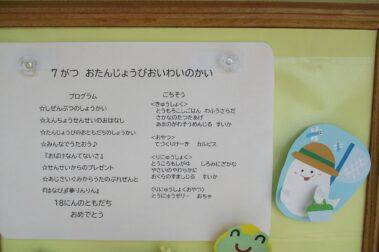 7がつ おたんじょうびおいわいのかい
プログラム
☆しぜんぶつのしょうかい
☆えんちょうせんせいのおはなし
☆たんじょうびのおともだちのしょうかい
☆みんなでうたおう♪
『おばけなんてないさ』
☆せんせいからのプレゼント
☆あじさいぐみからうたのぷれぜんと
『はなび』『夢りんりん』
18にんのともだち
おめでとう
ごちそう
<きゅうしょく>
とうもろこしごはん わふうさらだ
さかなのたつたあげ
あまのがわそうめんじる すいか
<おやつ>
てづくりけーき カルピス
<りにゅうしょく>
とうころもしがゆ しろみにざかな
やさいのやわらかに
おくらのすましじる すいか
<りにゅうしょくおやつ>
とうにゅうぜりー おちゃ